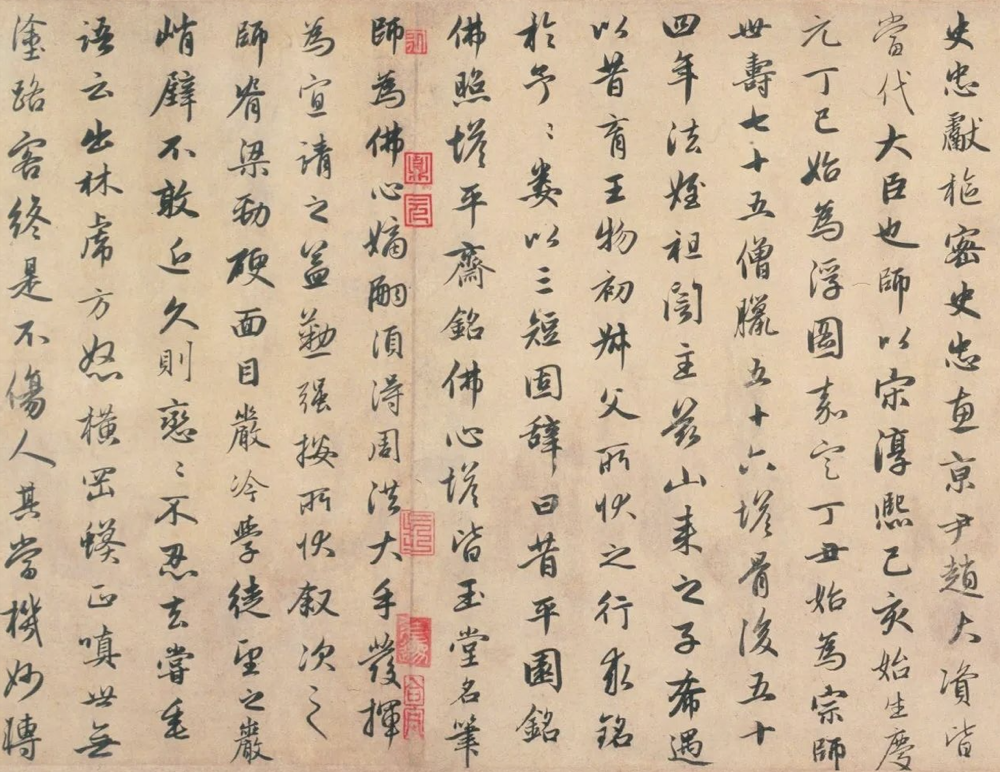 史忠獻樞密史忠惠京尹趙大資皆
當代大臣也師以宋淳熙己亥始生慶
元丁巳始為浮圖嘉定丁丑始為宗師
世壽七十五僧臘五十六塔骨後五十
四年法姪祖誾主茲山來之子希遇
以昔育王物初叔父所狀之行求銘
於予〻婁以三短固辭曰昔平園銘
佛照塔平齋銘佛心塔皆玉堂名筆
師為佛心嫡酮須得周洪大手發揮
為宣請之益勤强按所狀叙次之
師脊梁勁硬面目嚴冷學徒望之巖
峭壁不敢近久則戀〻不忍去嘗垂
語云出林虎方怒橫岡蟒正嗔世無
塗路客終是不傷人其當機妙轉